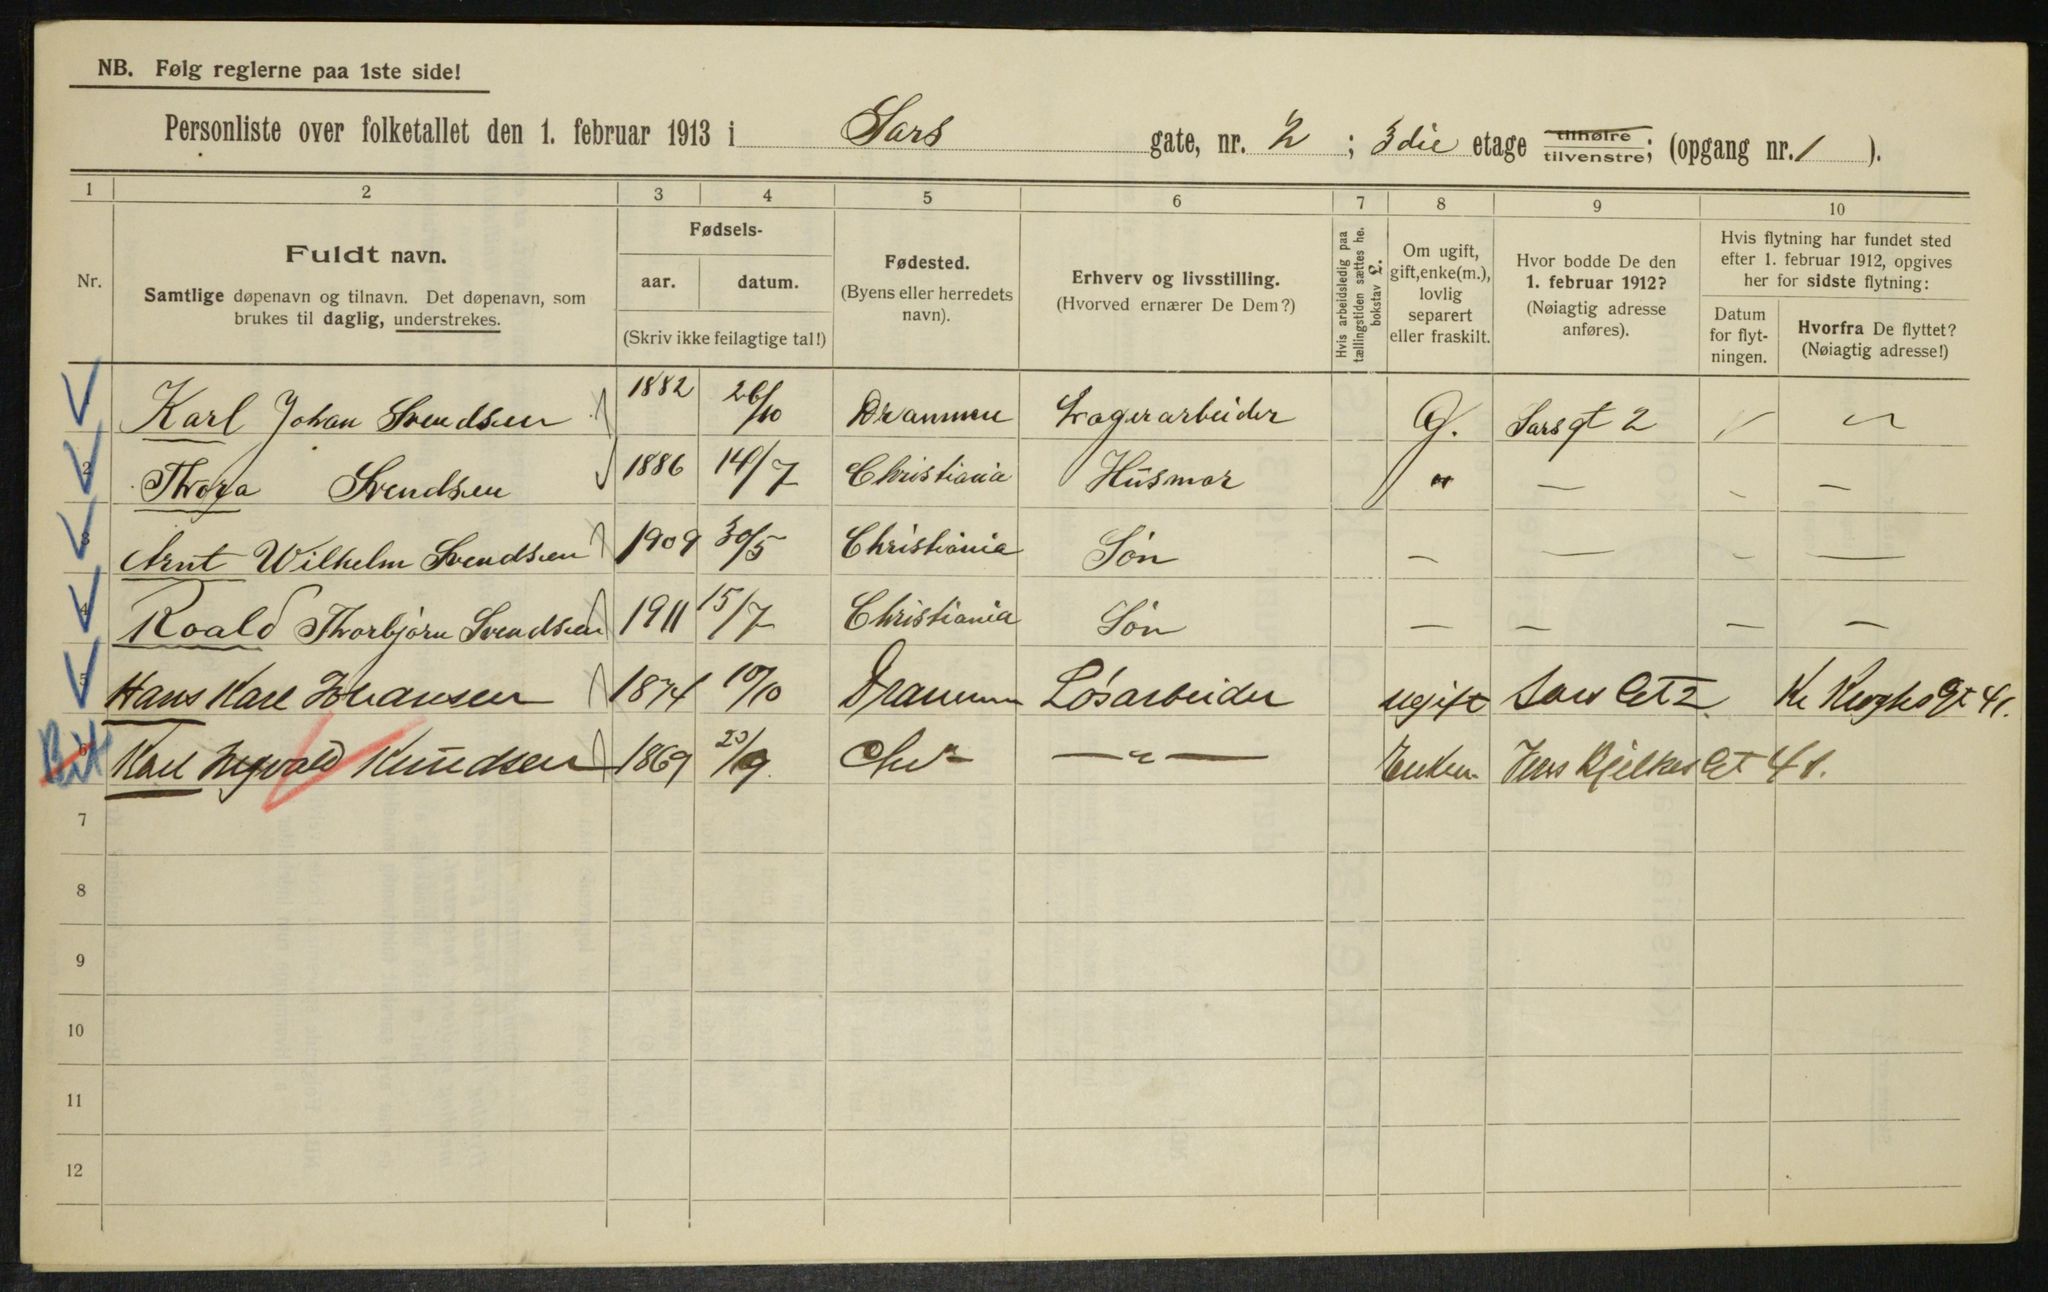 NB. Følg reglerne paa 1ste side!
Personliste over folketallet den 1. februar 1913 i Sars gate, nr. 2 ; 3die etage tilhøire tilvenstre; (opgang nr. 1 ).
1 2 3 4 5 6 7 8 9 10
Nr.
Fuldt navn.
Samtlige døpenavn og tilnavn. Det døpenavn, som
brukes til daglig, understrekes.
Fødsels-
aar. datum.
(Skriv ikke feilagtige tal!)
Fødested.
(Byens eller herredets
navn).
Erhverv og livsstilling.
(Hvorved ernærer De Dem?)
Hvis arbeidsledig paa
tællingstiden sættes he.
bokstav L.
Om ugift,
gift, enke(m.),
lovlig
separert
eller fraskilt.
Hvor bodde De den
1. februar 1912?
(Nøiagtig adresse
anføres).
Hvis flytning har fundet sted
efter 1. februar 1912, opgives
her for sidste flytning:
Datum
for flyt-
ningen.
Hvorfra De flyttet?
(Nøiagtig adresse!)
Karl Johan Svendsen 1882 26/10 Drammen Lagerarbeider G. Sarsgt 2
2 Thora Svendsen 1886 14/7 Christiania Husmor " — - —
3 Arnt Wilhelm Svendsen 1909 30/5 Christiania Søn — — - —
4 Roald Thorbjørn Svendsen 1911 15/7 Christiania Søn — — — —
5 Hans Karl Johansen 1874 10/10 Drammen Løsarbeider ugift Sars Gt 2 Gt 41.
6 Karl Knudsen 1869 20/9 Chr — " — Enkem. Jens Bjelkes Gt 41.
7
8
9
10
11
12